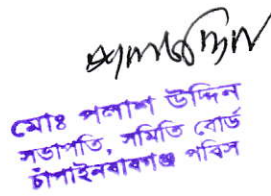 মোঃ পলাশ উদ্দিন
সভাপতি, সমিতি বোর্ড
চাঁপাইনবাবগঞ্জ পবিস